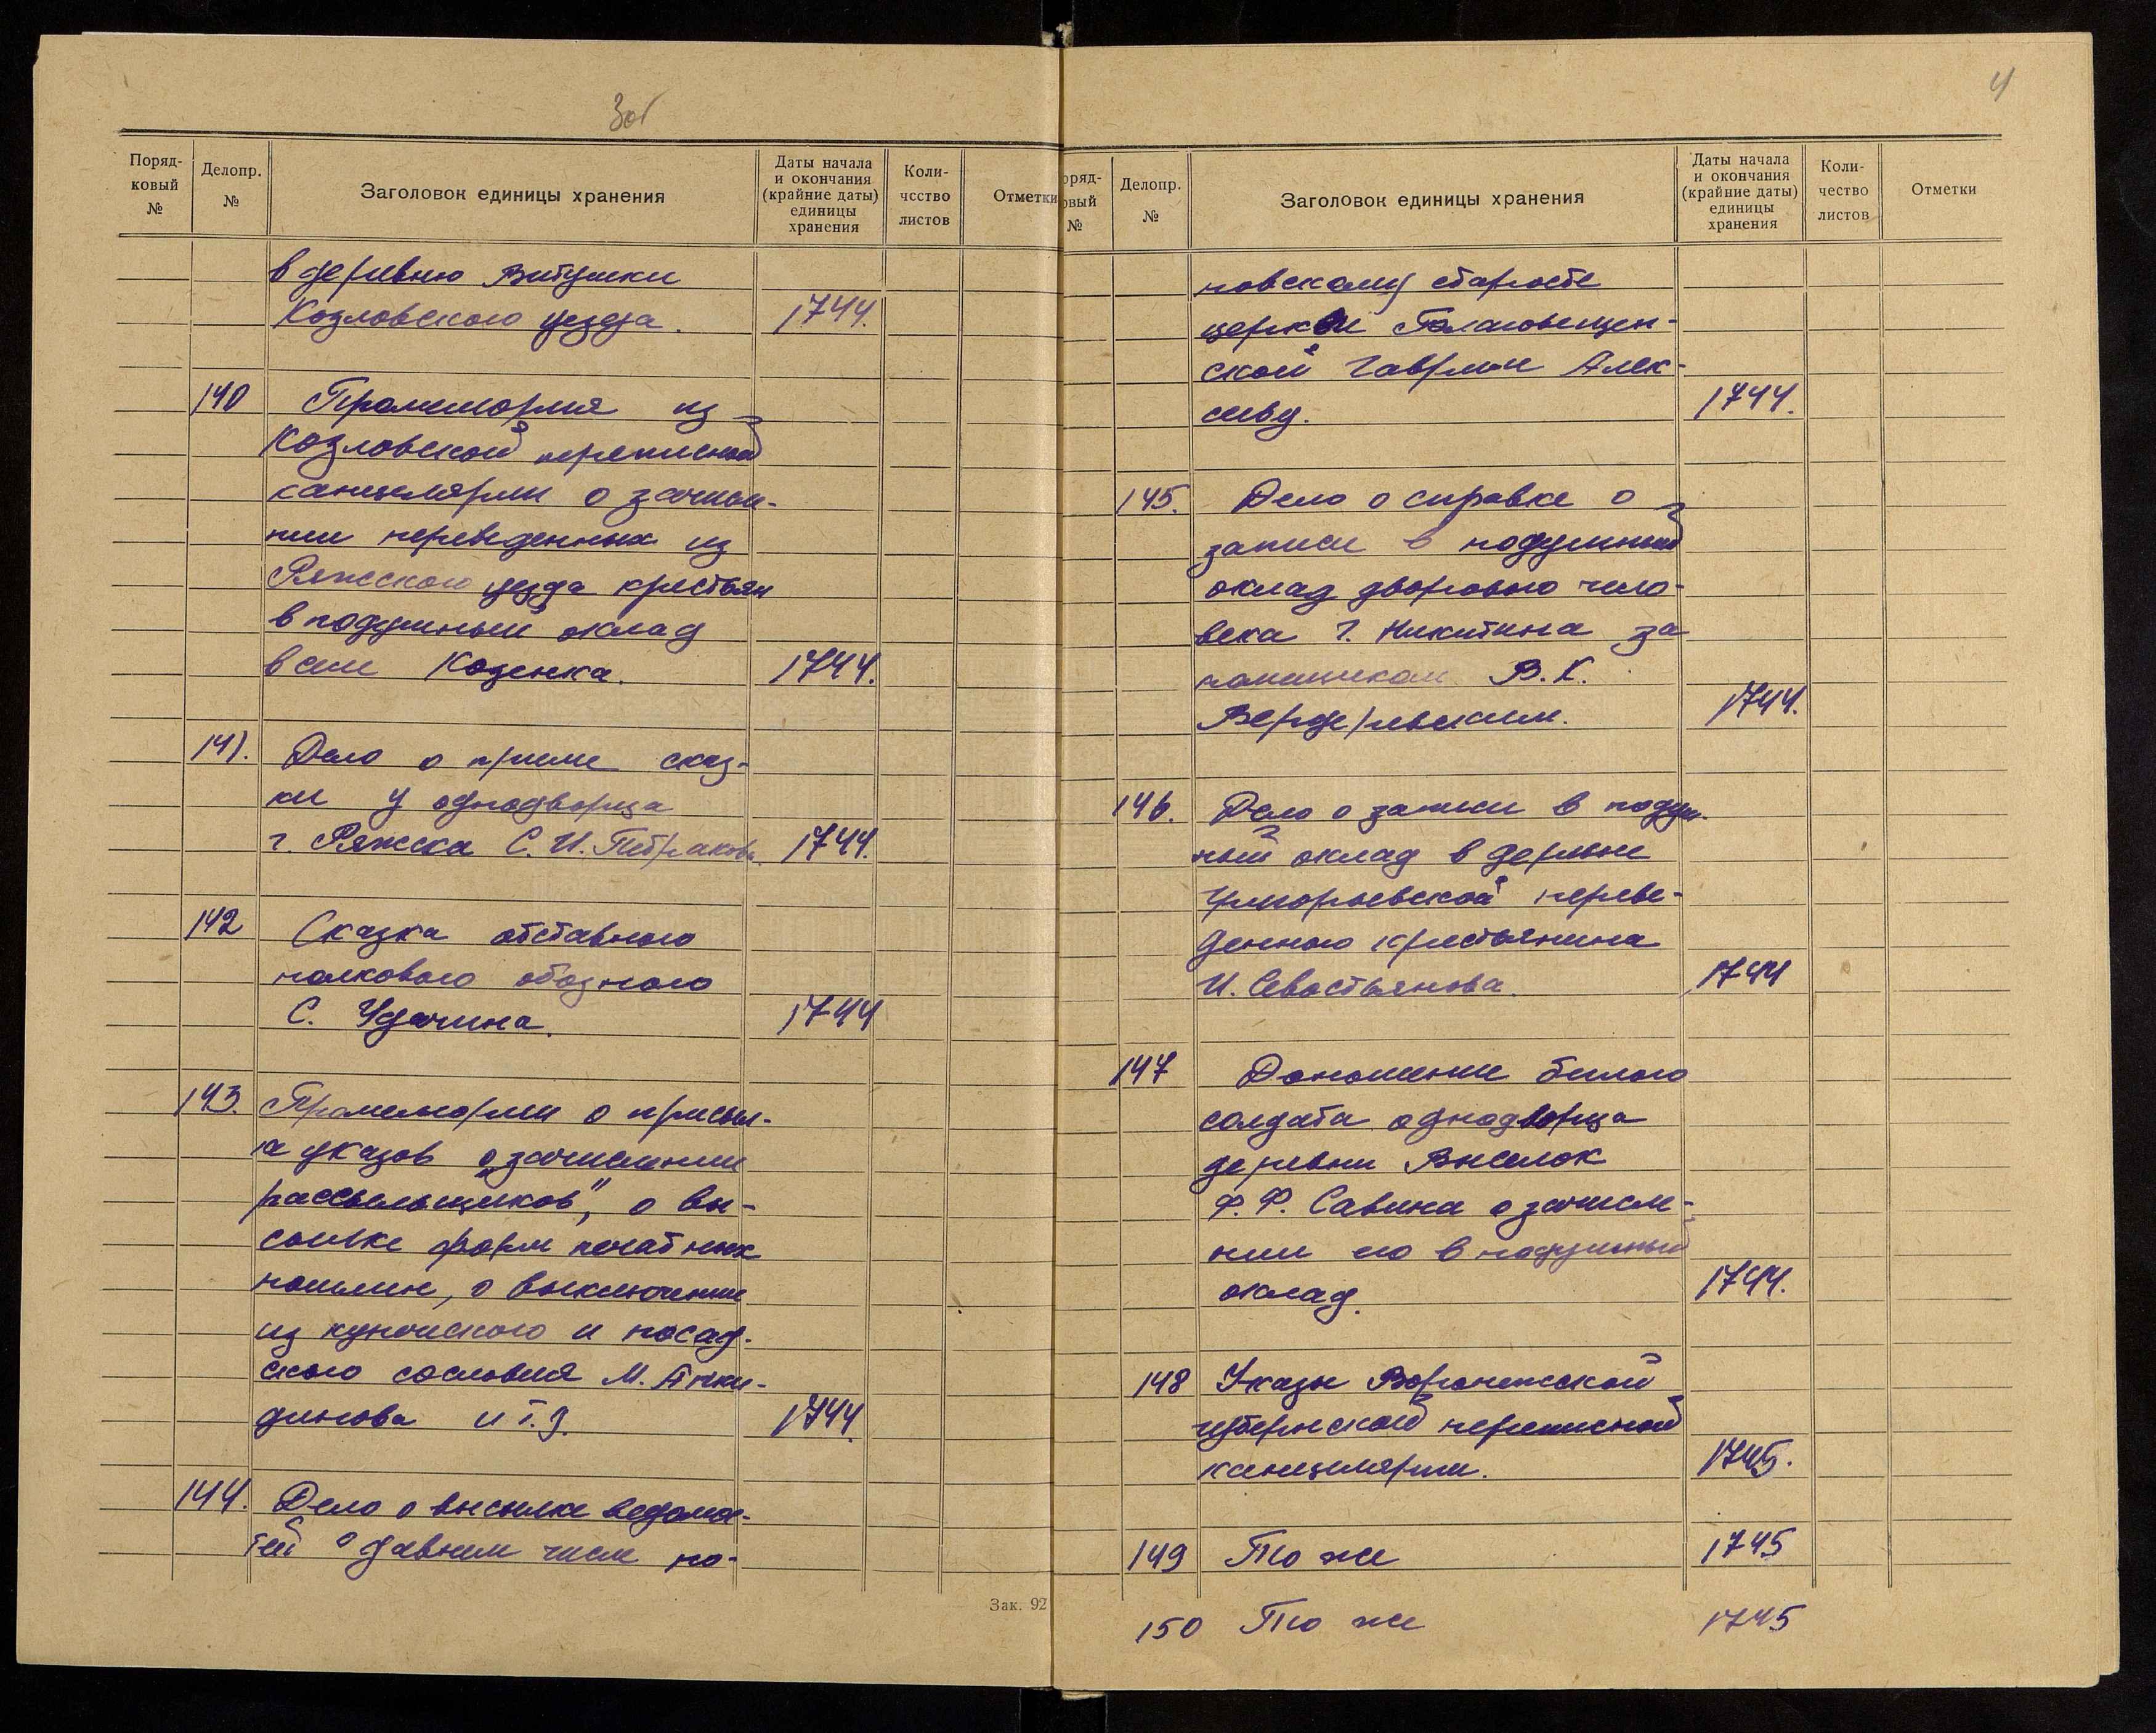 3об
Поряд-
ковый
№
Делопр.
№
Заголовок единицы хранения
Даты начала
и окончания
(крайние даты)
единицы
хранения
Коли-
чество
листов
Отметки
в деревню Витушки
Козловского уезда. 1744.
140 Промемория из
Козловской переписной
канцелярии о зачисле-
нии переведенных из
Ряжского уезда крестьян
в подушный оклад
в селе Козинка. 1744.
141. Дело о приеме сказ-
ки у однодворца
г. Ряжска С. И. Петракова. 1744.
142 Сказка отставного
полкового обозного
С. Удачина. 1744
143. Промемории о присыл-
ке указов „о зачислении
рассыльщиков", о вы-
сылке форм печатных
пошлин, о выключении
из купеческого и посад-
ского сословия М. Анки-
динова и т.д. 1744.
144. Дело о высылке ведомос-
тей о давнем числе по-
Зак. 92
4
оряд-
овый
№
Делопр.
№
Заголовок единицы хранения
Даты начала
и окончания
(крайние даты)
единицы
хранения
Коли-
чество
листов
Отметки
повскому старосте
церкви Благовещен-
ской Гавриле Алек-
сееву. 1744.
145. Дело о справке о
записи в подушный
оклад дворового чело-
века Г. Никитина за
помещиком В. К.
Вердеревским. 1744.
146. Дело о записи в подуш-
ный оклад в деревне
переве-
денного крестьянина
И. Севостьянова. 1744
147 Доношение белого
солдата однодворца
деревни Выселок
Ф. Ф. Савина о зачисле-
нии его в подушный
оклад. 1744.
148 Указы Воронежской
губернской переписной
канцелярии. 1745.
149 То же 1745
150 То же 1745